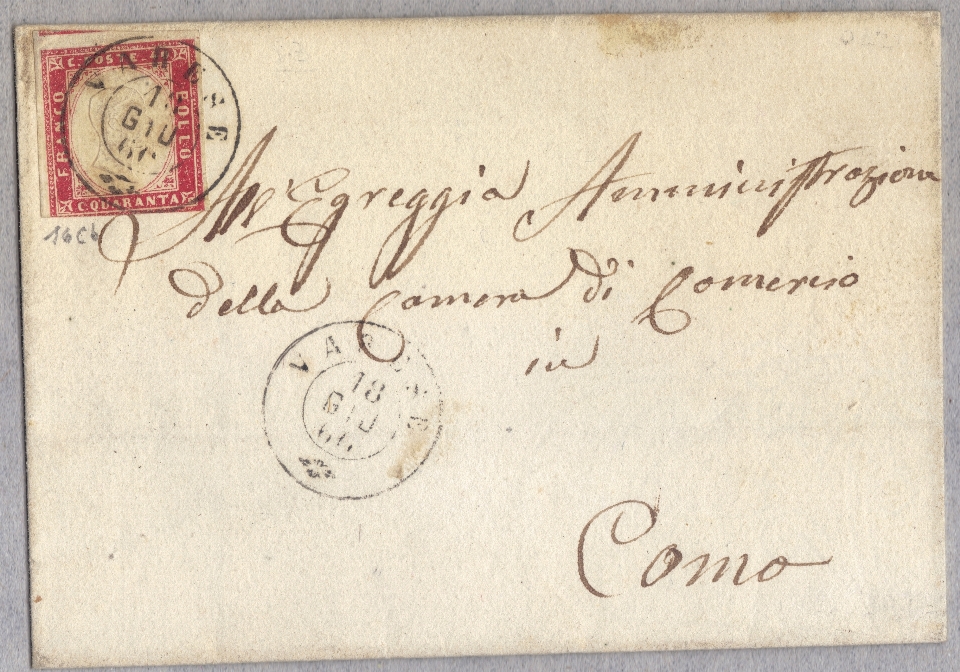 C. POSTE 4
FRANCO
BOLLO
C QUARANTA
VARESE
18
GIU
66
16Cb
All' Egreggia Amministrazione
della Camera di Comercio
in
VARESE
18
GIU
66
Como